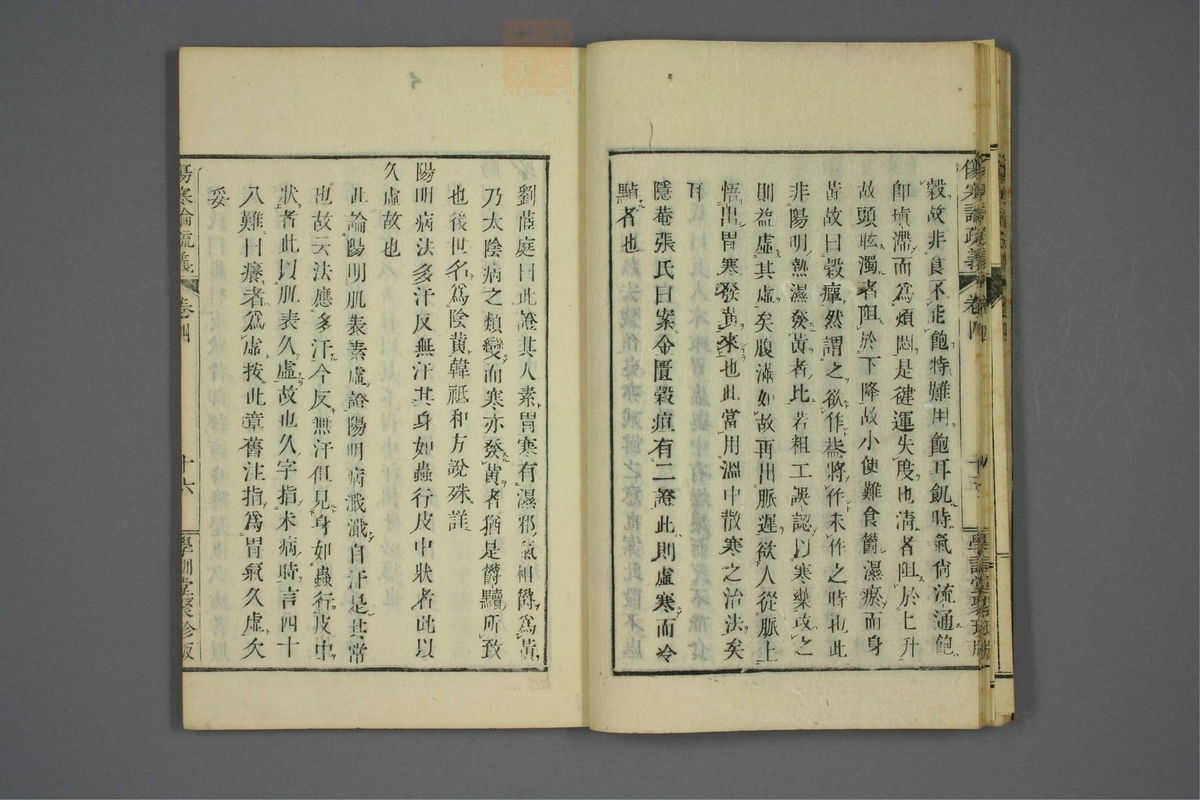 穀故非食不能飽特難用飽耳飢時氣尙流通飽
卽塡滯而爲煩悶是健運失度也淸者阻於上升
故頭眩濁者阻於下降故小便難食鬱濕瘀而身
黃故曰穀癉然謂之欲作恭將作未作之時也此
非陽明熱濕發黃者比若粗工誤認以寒藥攻之
則益虛其虛矣腹滿如故再出脈遲欲人從脈上
悟出胃寒發黃來也此當用溫中散寒之治法矣
隱菴張氏曰案金匱穀疸有二證此則虛寒而冷
黠者也
傷寒論疏義
卷四
十五
劉茝庭曰此證其人素胃寒有濕邪氣相鬱爲黃
乃太陰病之類變而寒亦發黃者猶是鬱黷所致
也後世名爲陰黃韓祗和方說殊詳
陽明病法多汗反無汗其身如蟲行皮中狀者此以
久虛故也
此論陽明肌表素虛證陽明病濈濈自汗是其常
也故云法應多汗今反無汗但見身如蟲行皮中
狀者此以肌表久虛故也久字指未病時言四十
八難曰癢者爲虛按此章舊注指爲胃氣久虛欠
妥
傷寒論疏義
卷四
十六
學訓堂聚珍版